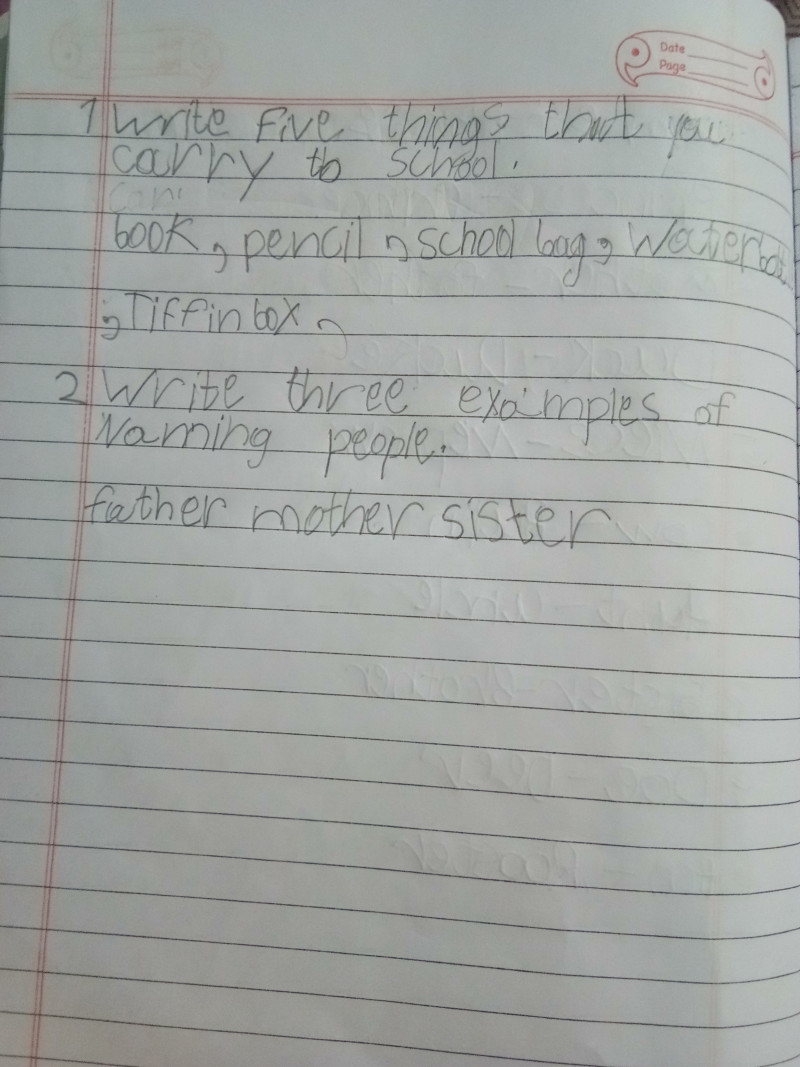 Date
Page
1 Write Five things that you
carry to school.
book, pencil, school bag, Waterbot
, Tiffin box,
2 Write three examples of
Naming people.
father mother sister